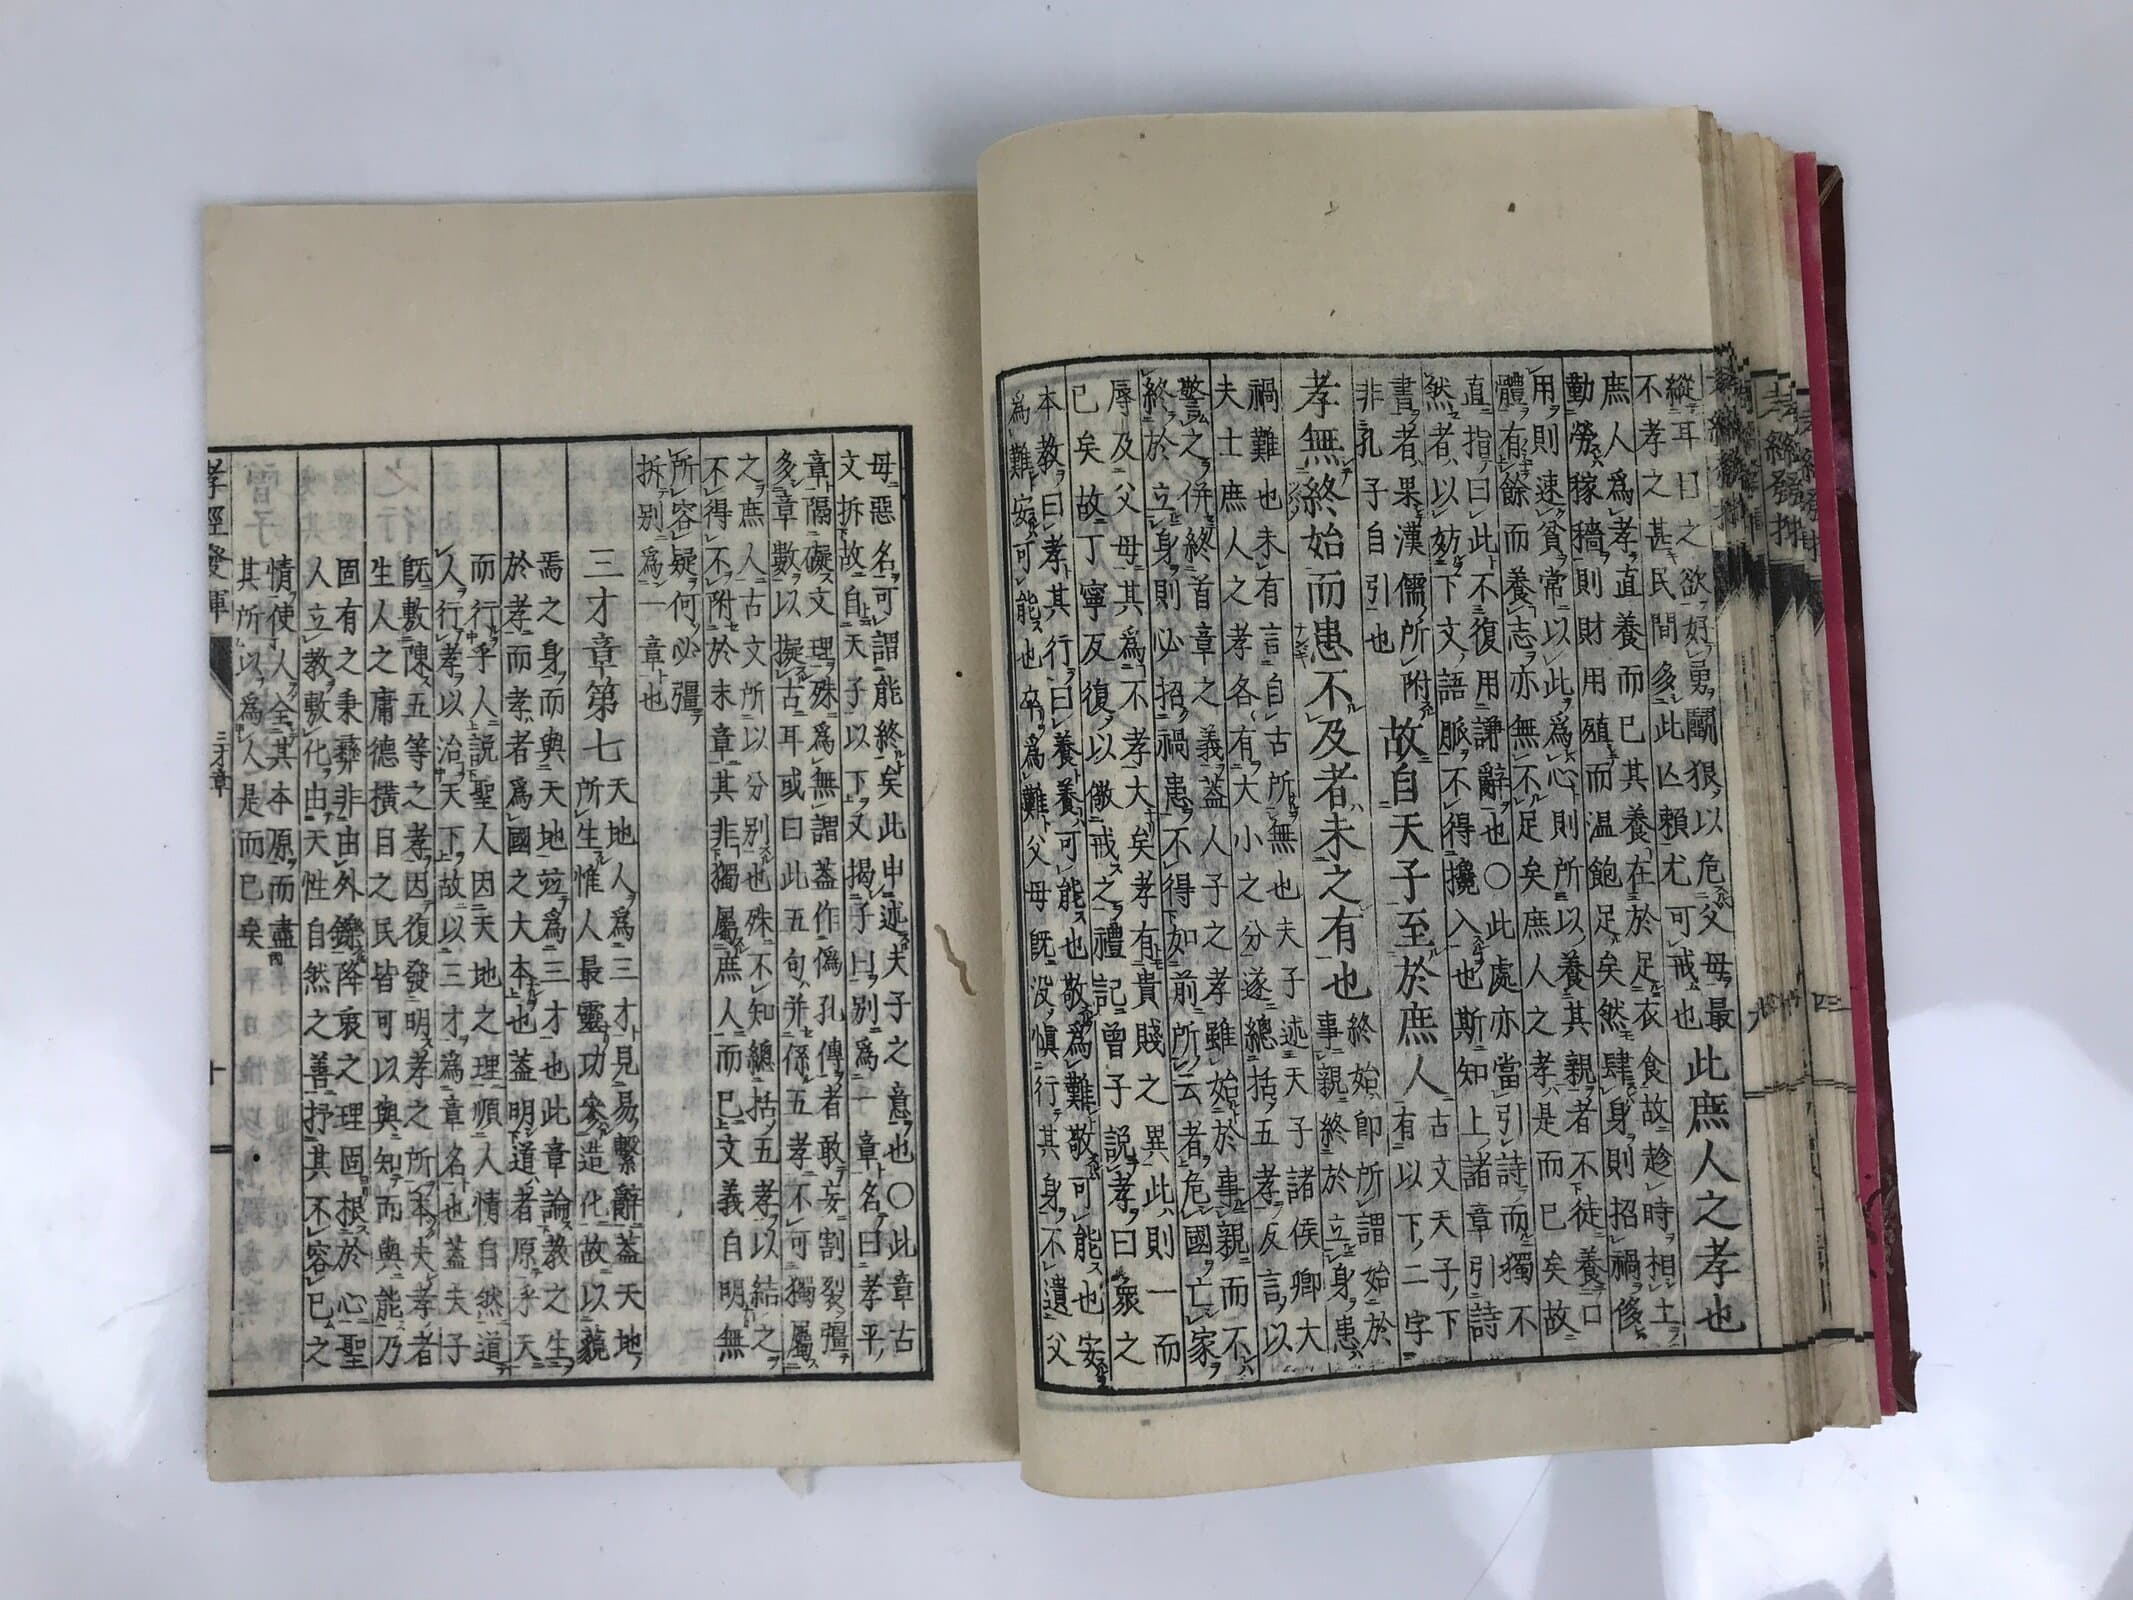 縱耳目之欲好勇鬪狠以危父母最
不孝之甚民間多此亾賴尤可戒也
此庶人之孝也
庶人爲孝直養而已其養在於足衣食故趁時相土
勤勞稼穡則財用殖而温飽足矣然肆身則招禍侈
用則速貧常以此爲心則所以養其親者不徒養口
體有餘而養志亦無不足矣庶人之孝是而已矣故
直指曰此不復用謙辭也〇此處亦當引詩而獨不
然者以妨下文語脈不得攙入也斯知上諸章引詩
書者果漢儒所附
非孔子自引也
故自天子至於庶人
古文天子下
有以下二字
孝無終始而患不及者未之有也
終始即所謂始於
事親終於立身患
禍難也未有言自古所無也夫子述天子諸侯卿大
夫士庶人之孝各有大小之分遂總括五孝反言以
警之併終首章之義葢人子之孝雖始於事親而不
終於立身則必招禍患不得如前所云者危國亡家
辱及父母其爲不孝大矣孝有貴賤之異此則一而
已矣故丁寧反復以儆戒之禮記曾子説孝曰衆之
本教曰孝其行曰養養可能也敬爲難敬可能也安
爲難安可能也卒爲難父母既没慎行其身不遺父
母惡名可謂能終矣此申述夫子之意也〇此章古
文拆故自天子以下又揭子曰別爲一章名曰孝平
章隔礙文理殊爲無謂葢作僞孔傳者敢妄割裂彊
多章數以擬古耳或曰此五句并係五孝不可獨屬
之庶人古文所以分別也殊不知總括五孝以結之
不得不附於末章其非獨屬庶人而已文義自明無
所容疑何必彊
拆別爲一章也
三才章第七
天地人爲三才見易繫辭葢天地
所生惟人最靈功參造化故以藐
焉之身而與天地竝爲三才也此章論教之生
於孝而孝者爲國之大本也葢明道者原乎天
而行乎人説聖人因天地之理順人情自然道
人行孝以治天下故以三才爲章名也葢夫子
既敷陳五等之孝因復發明孝之所本夫孝者
生人之庸德横目之民皆可以與知而與能乃
固有之秉彝非由外鑠降衷之理固根於心聖
人立教敷化由天性自然之善抒其不容已之
情使人全其本原而盡
其所以爲人是而已矣
孝經發揮
三才章
十